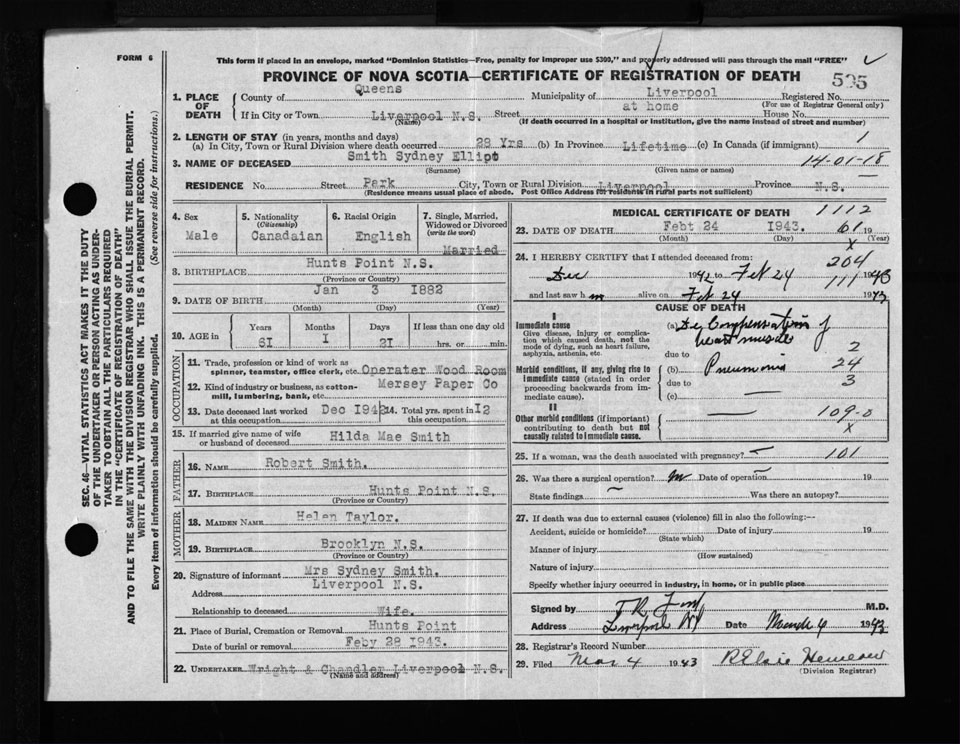 FORM 6
This form if placed in an envelope, marked "Dominion Statistics—Free, penalty for improper use $300," and properly addressed will pass through the mail "FREE"
PROVINCE OF NOVA SCOTIA—CERTIFICATE OF REGISTRATION OF DEATH
505
1. PLACE OF DEATH
County of Queens Municipality of Liverpool Registered No.
(For use of Registrar General only)
If in City or Town Liverpool N.S. Street at home House No.
(Name) (If death occurred in a hospital or institution, give the name instead of street and number)
2. LENGTH OF STAY (in years, months and days)
(a) In City, Town or Rural Division where death occurred 28 Yrs (b) In Province Lifetime (c) In Canada (if immigrant) 1
3. NAME OF DECEASED Smith Sydney Elliot 14-01-18
(Surname) (Given name or names)
RESIDENCE No. Street Park City, Town or Rural Division Liverpool Province N.S.
(Residence means usual place of abode. Post Office Address for residents in rural parts not sufficient)
4. Sex Male
5. Nationality (Citizenship) Canadaian
6. Racial Origin English
7. Single, Married, Widowed or Divorced (write the word) Married
8. BIRTHPLACE Hunts Point N.S.
(Province or Country)
9. DATE OF BIRTH Jan 3 1882
(Month) (Day) (Year)
10. AGE in Years Months Days If less than one day old
61 1 21 hrs. or min.
OCCUPATION
11. Trade, profession or kind of work as spinner, teamster, office clerk, etc. Operater Wood Room
12. Kind of industry or business, as cotton-mill, lumbering, bank, etc. Mersey Paper Co
13. Date deceased last worked at this occupation Dec 1942 14. Total yrs. spent in this occupation 12
15. If married give name of wife or husband of deceased Hilda Mae Smith
FATHER
16. NAME Robert Smith.
17. BIRTHPLACE Hunts Point N.S.
(Province or Country)
MOTHER
18. MAIDEN NAME Helen Taylor.
19. BIRTHPLACE Brooklyn N.S.
(Province or Country)
20. Signature of informant Mrs Sydney Smith.
Address Liverpool N.S.
Relationship to deceased Wife.
21. Place of Burial, Cremation or Removal Hunts Point
Date of burial or removal Feby 28 1943.
22. UNDERTAKER Wright & Chandler Liverpool N.S.
(Name and address)
MEDICAL CERTIFICATE OF DEATH 1112
23. DATE OF DEATH Febt 24 1943. 61 19
(Month) (Day) (Year)
X
24. I HEREBY CERTIFY that I attended deceased from: 204
Dec 1942 to Feb 24 111 1943
and last saw him alive on Feb 24 1943
CAUSE OF DEATH
I
Immediate cause
Give disease, injury or complication which caused death, not the mode of dying, such as heart failure, asphyxia, asthenia, etc.
(a) Decompensation of heart muscle 2
due to
Morbid conditions, if any, giving rise to immediate cause (stated in order proceeding backwards from immediate cause).
(b) Pneumonia 24
due to 3
(c)
II
Other morbid conditions (if important) contributing to death but not causally related to immediate cause.
109-0
X
25. If a woman, was the death associated with pregnancy? 101
26. Was there a surgical operation? no Date of operation 19
State findings Was there an autopsy?
27. If death was due to external causes (violence) fill in also the following:—
Accident, suicide or homicide? Date of injury 19
(State which)
Manner of injury
(How sustained)
Nature of injury
Specify whether injury occurred in industry, in home, or in public place
Signed by M.D.
Address Liverpool NS Date March 4 1943
28. Registrar's Record Number
29. Filed Mar 4 1943 R Elsie
(Division Registrar)
SEC. 46—VITAL STATISTICS ACT MAKES IT THE DUTY OF THE UNDERTAKER OR PERSON ACTING AS UNDERTAKER TO OBTAIN ALL THE PARTICULARS REQUIRED IN THE "CERTIFICATE OF REGISTRATION OF DEATH"
AND TO FILE THE SAME WITH THE DIVISION REGISTRAR WHO SHALL ISSUE THE BURIAL PERMIT.
WRITE PLAINLY WITH UNFADING INK. THIS IS A PERMANENT RECORD.
Every item of information should be carefully supplied. (See reverse side for instructions.)